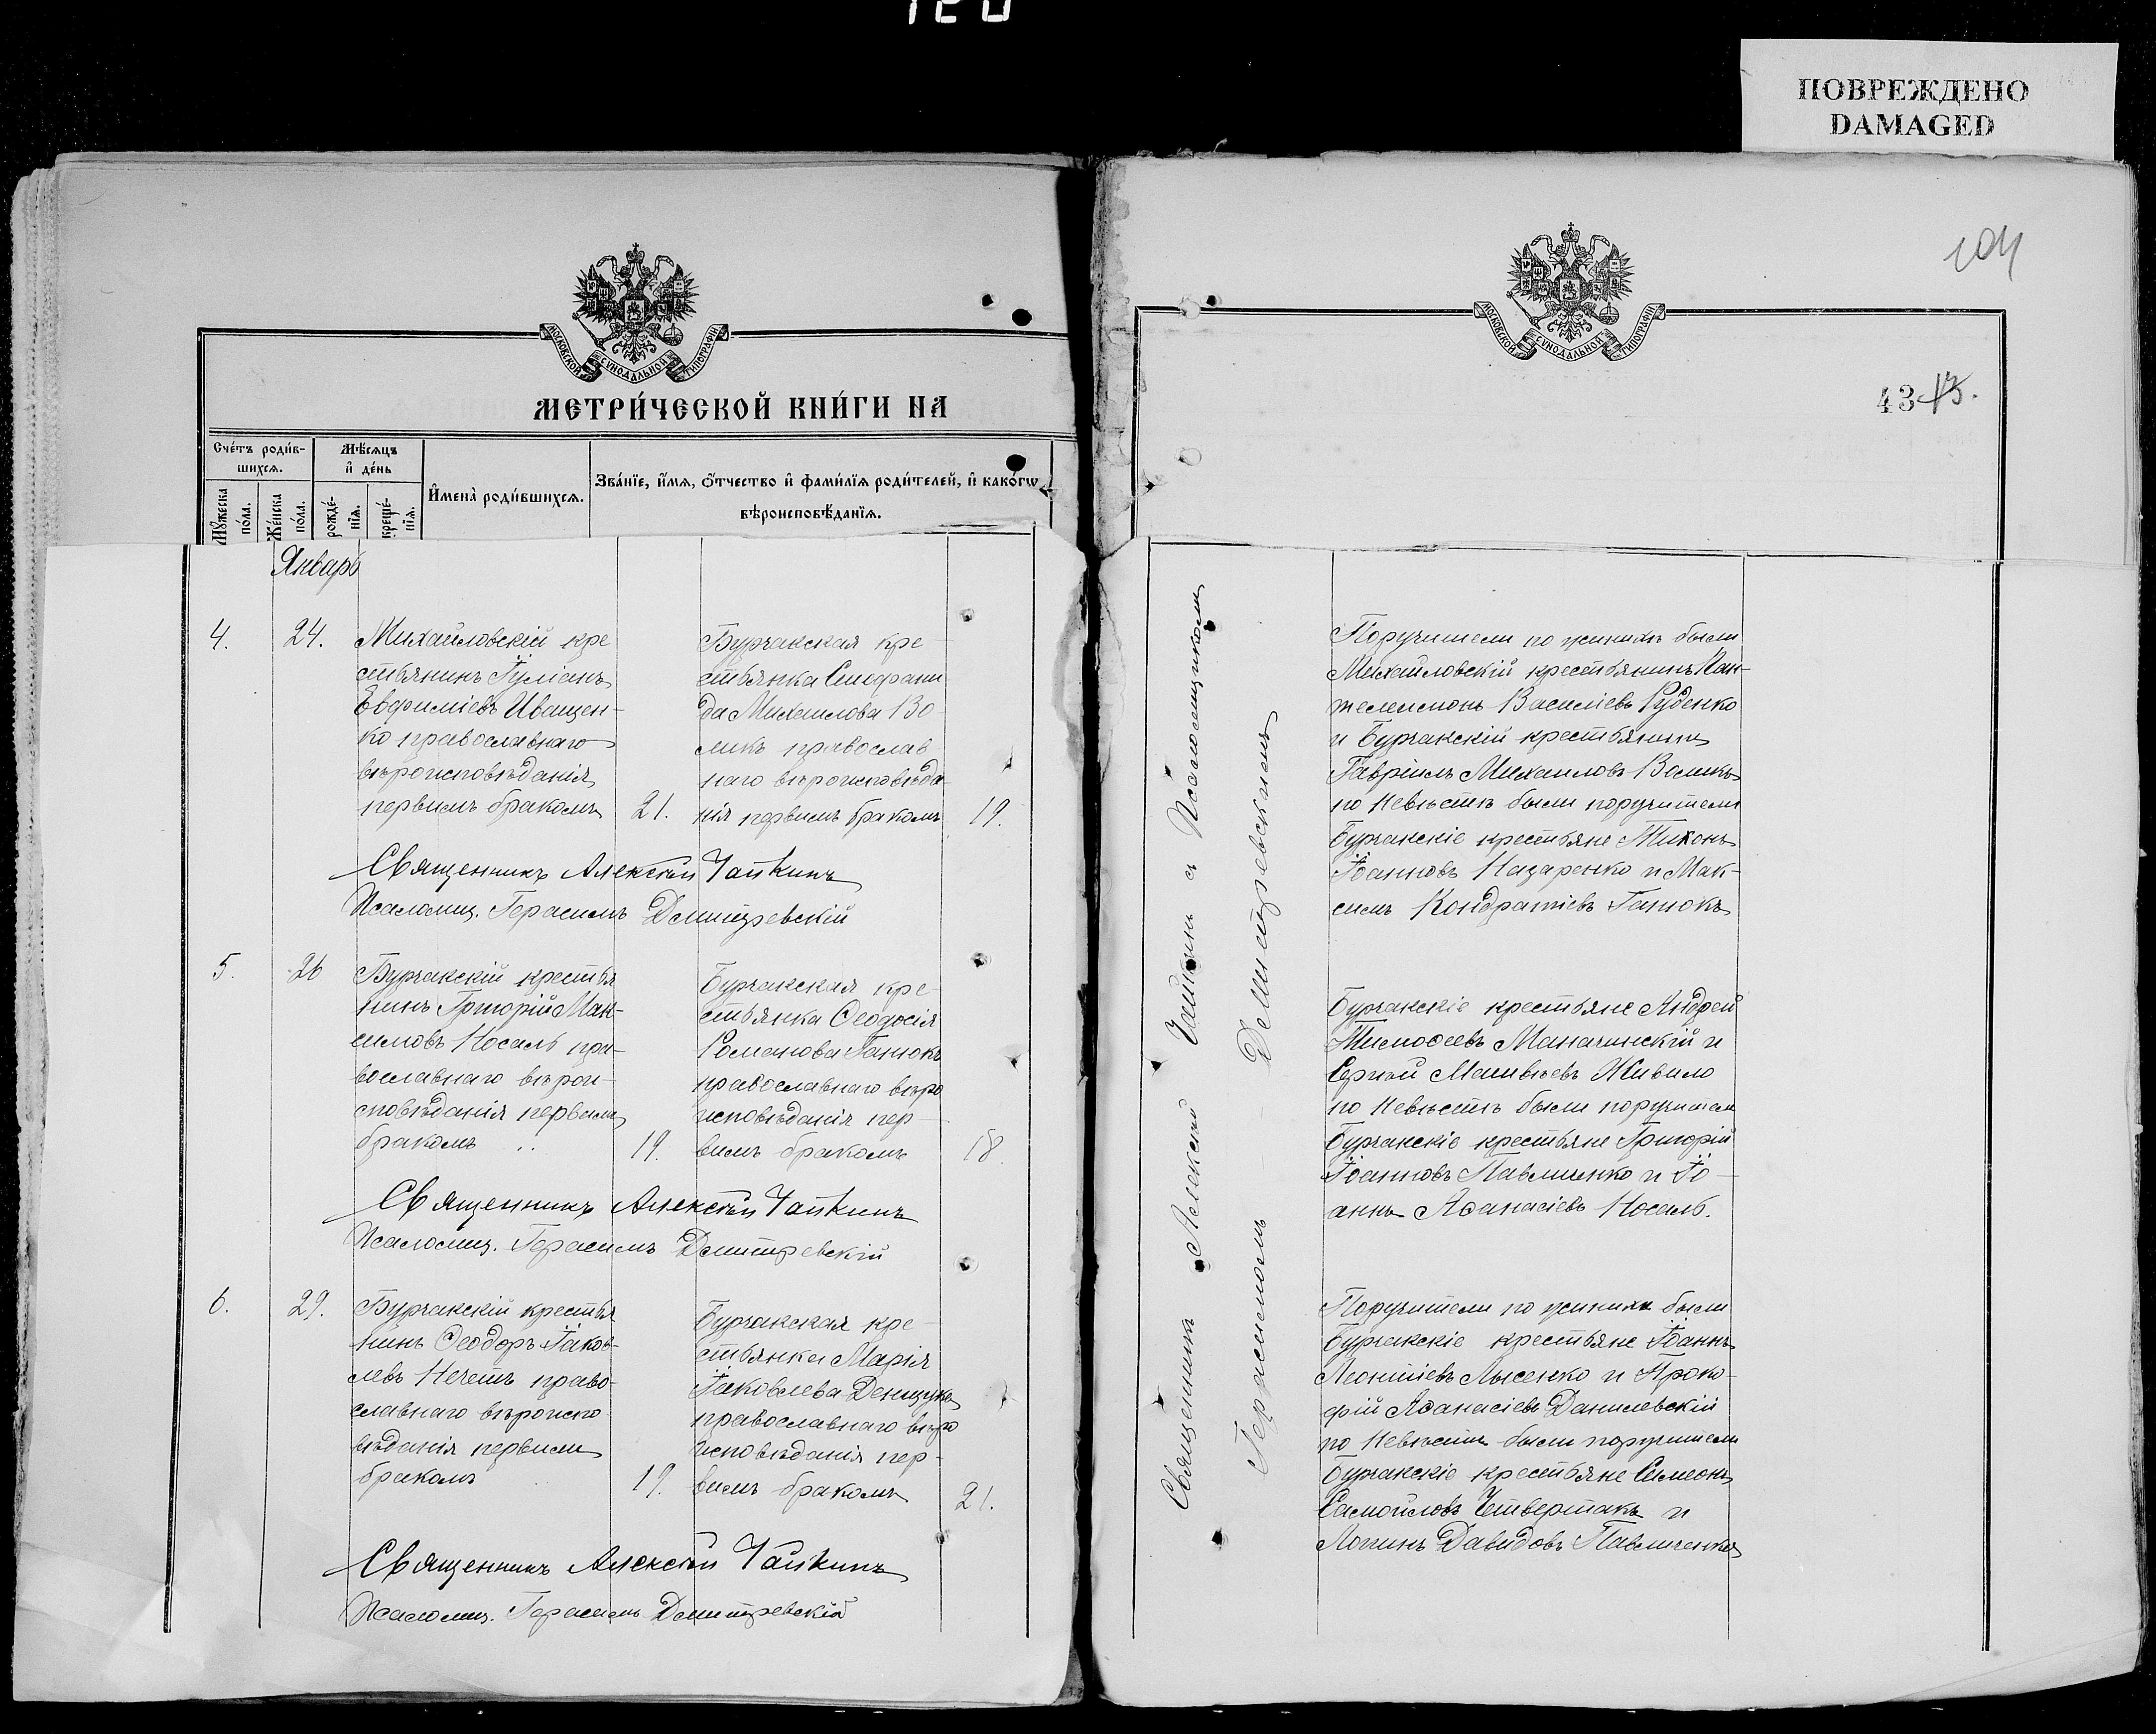 ПОВРЕЖДЕНО
DAMAGED
МОСКОВСКОЙ СѴНОДАЛЬНОЙ ТИПОГРАФІИ
МЕТРИ́ЧЕСКОЙ КНИ́ГИ НА
Сче́тъ роди́в-
шихсѧ.
Мꙋ́жеска
по́ла.
Же́нска
по́ла.
Мѣ́сѧцъ
и҆ де́нь
рожде́-
нїѧ.
креще́-
нїѧ.
И҆мена̀ роди́вшихсѧ.
Зва́нїе, и҆́мѧ, ѻ҆́тчество и҆ фами́лїѧ роди́телей, и҆ како́гѡ
вѣроисповѣ́данїѧ.
Январь
4.
24.
Михайловскій кре
стьянинъ Іуліанъ
Евфиміевъ Иващен-
ко православнаго
вѣроисповѣданія
первымъ бракомъ
21.
Бурчакская кре-
стьянка
да Михаилова Во-
ликъ православ
наго вѣроисповѣда
нія первымъ бракомъ
19.
Священникъ Алексѣй Чайкинъ
Псаломщ. Герасимъ Демитревскій
5.
26
Бурчакскій крестья
нинъ Григорій Мак-
симовъ Носаль пра-
вославнаго вѣрои-
сповѣданія первымъ
бракомъ
19.
Бурчакская кре-
стьянка Ѳеодосія
Романова Ганюкъ
православнаго вѣро
исповѣданія пер-
вымъ бракомъ
18.
Священникъ Алексѣй Чайкинъ
Псаломщ. Герасимъ Демитревскій
6.
29.
Бурчакскій крестья
нинъ Ѳеодоръ Іаков-
левъ Нечетъ право-
славнаго вѣроиспо
вѣданія первымъ
бракомъ
19.
Бурчакская кре-
стьянка Марія
Іаковлева
православнаго вѣро
исповѣданія пер-
вымъ бракомъ
21.
Священникъ Алексѣй Чайкинъ
Псаломщ. Герасимъ Демитревскій
104
МОСКОВСКОЙ СѴНОДАЛЬНОЙ ТИПОГРАФІИ
43
Священникъ Алексѣй Чайкинъ съ Псаломщикомъ
Герасимомъ Демитревскимъ
Поручители по женихѣ были
Михайловскій крестьянинъ Пан-
телеимонъ Василіевъ Руденко
и Бурчакскій крестьянинъ
Гавріилъ Михаиловъ Воликъ
по невѣстѣ были поручители
Бурчакскіе крестьяне Тихонъ
Іоанновъ Назаренко и Мак-
симъ Кондратіевъ Ганюкъ
Бурчакскіе крестьяне Андрей
Тимоѳеевъ Маначинскій и
Сергѣй Матвѣевъ Живило
по невѣстѣ были поручители
Бурчакскіе крестьяне Григорій
Іоанновъ Павличенко и Іо-
аннъ Аѳанасіевъ Носаль.
Поручители по женихѣ были
Бурчакскіе крестьяне Іоаннъ
Леонтіевъ Лысенко и Проко-
фій Аѳанасіевъ Данилевскій
по невѣстѣ были поручители
Бурчакскіе крестьяне Симеонъ
Самойловъ Четвертакъ и
Логинъ Давидовъ Павличенко